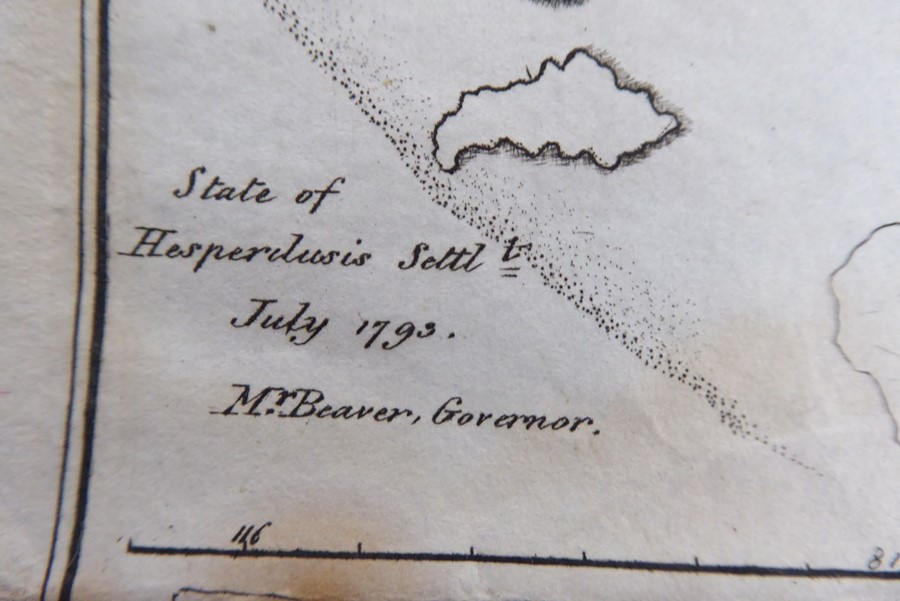 State of
Hesperdusis Settlt.
July 1793.
Mr. Beaver, Governor.
146